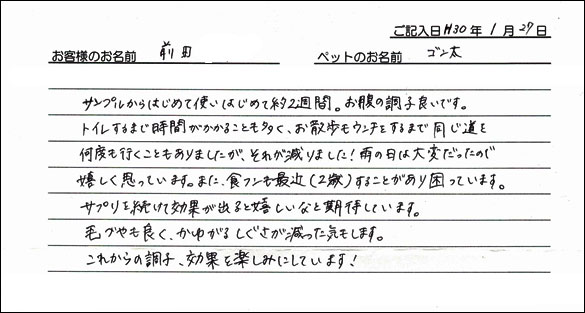 ご記入日 H30 年 1 月 27 日
お客様のお名前 前田 ペットのお名前 ゴン太
サンプルからはじめて使いはじめて約2週間。お腹の調子良いです。
トイレするまで時間がかかることも多く、お散歩もウンチをするまで同じ道を
何度も行くこともありましたが、それが減りました!雨の日は大変だったので
嬉しく思っています。また、食フンも最近(2歳)することがあり困っています。
サプリを続けて効果が出ると嬉しいなと期待しています。
毛づやも良く、かゆがるしぐさが減った気もします。
これからの調子、効果を楽しみにしています!